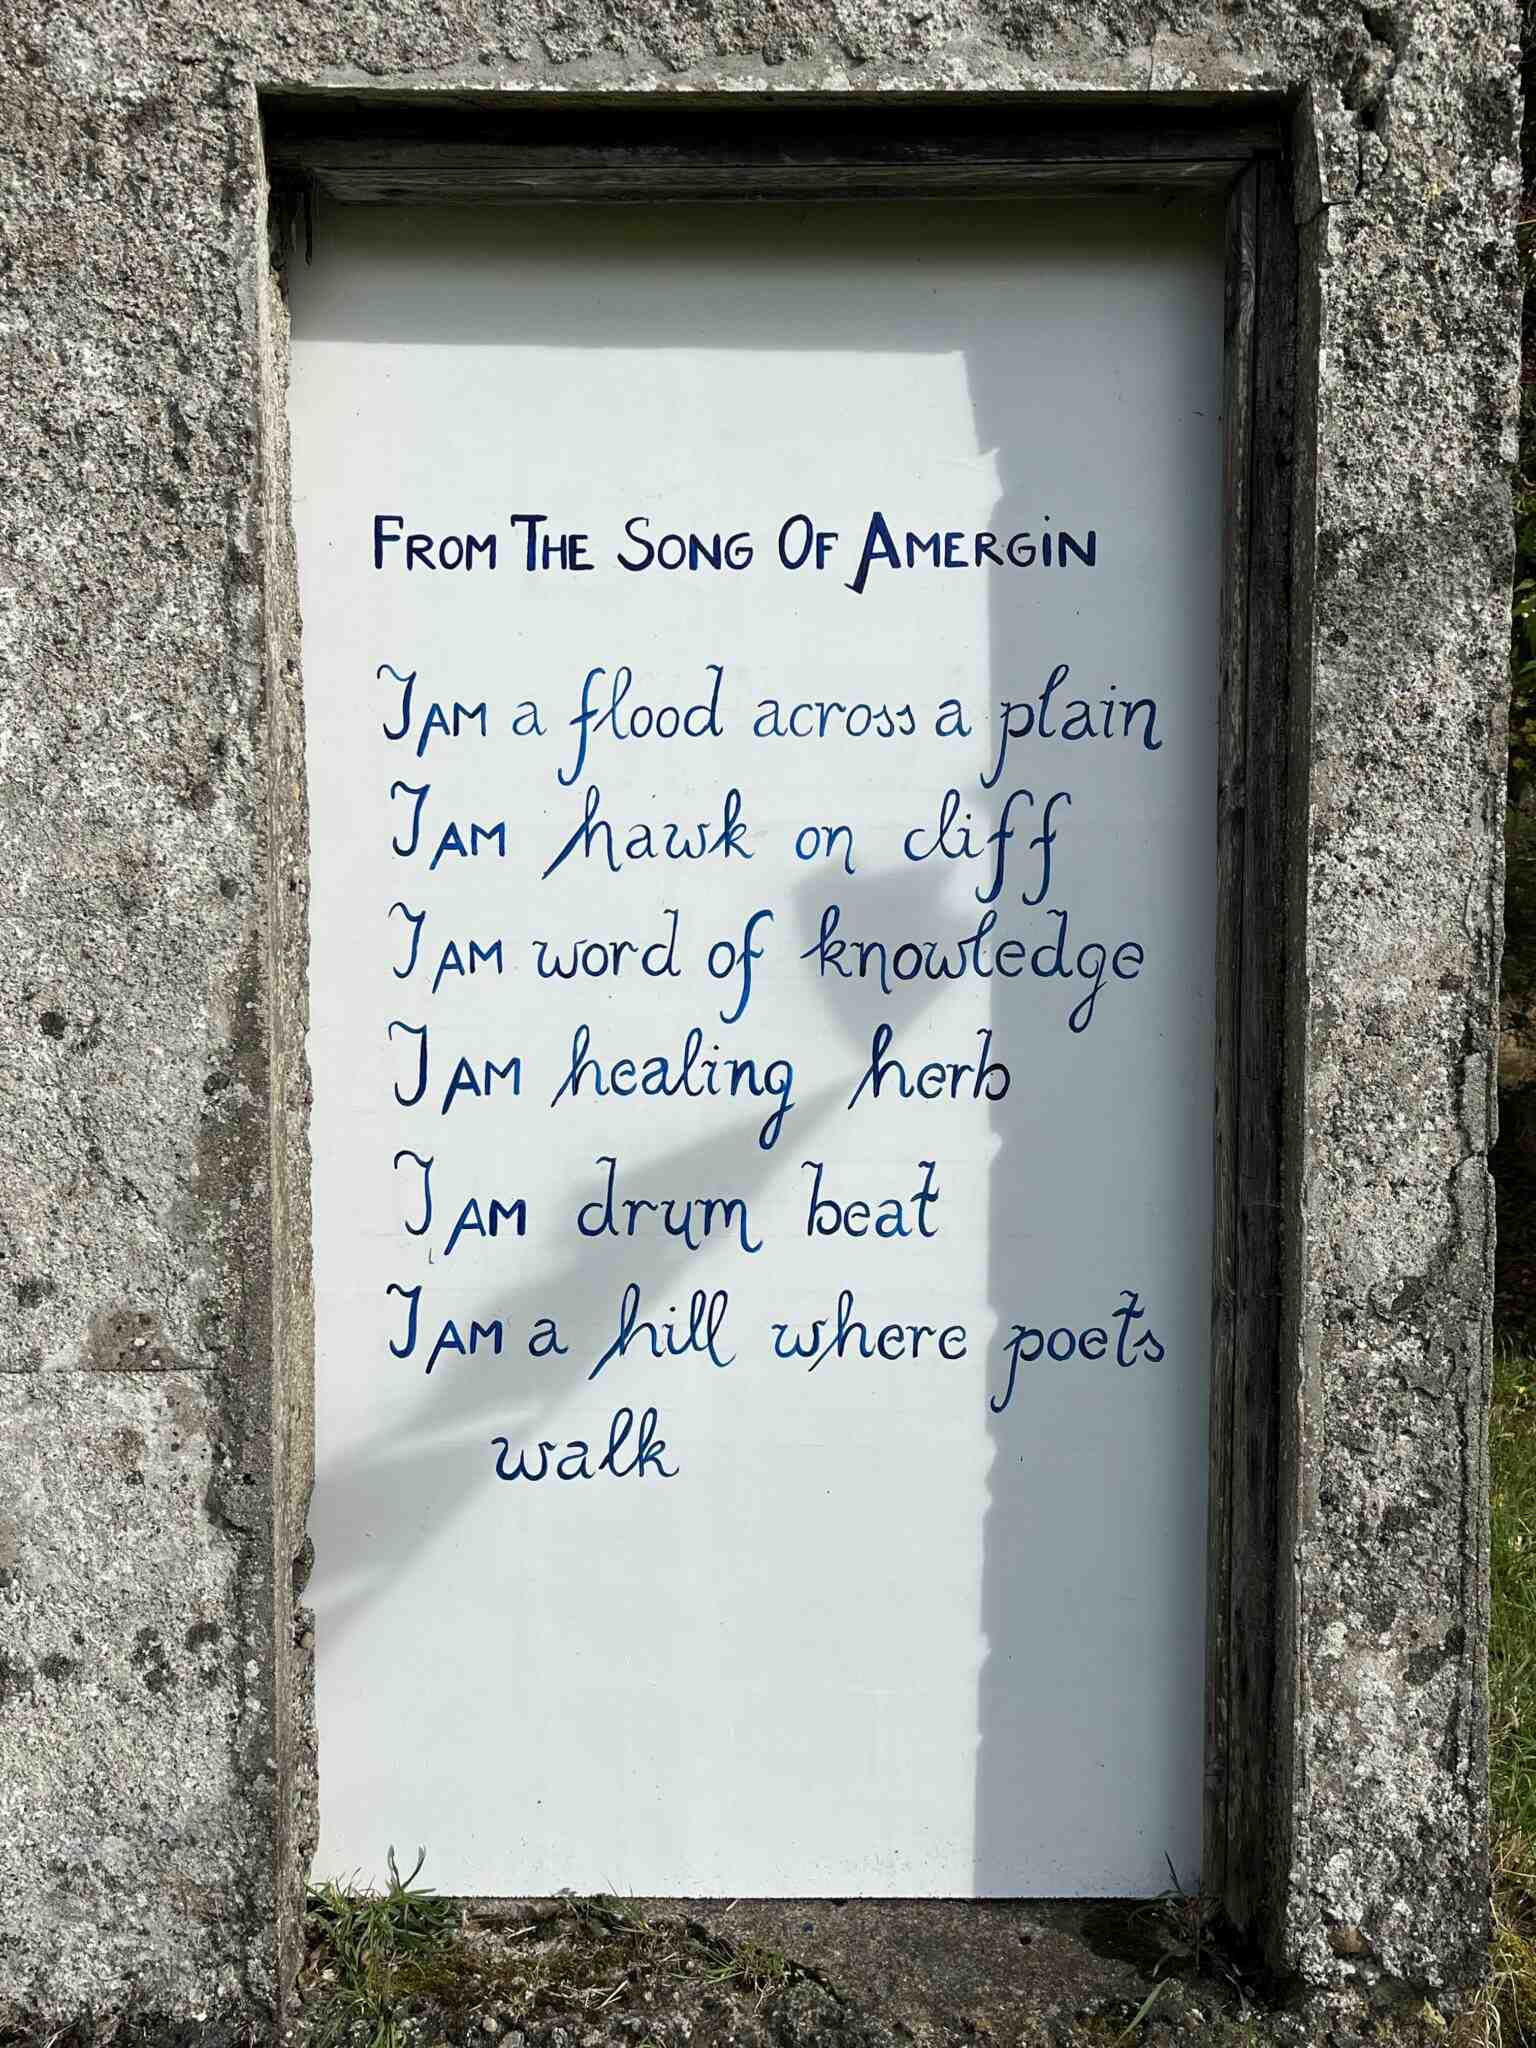 FROM THE SONG OF AMERGIN
I AM a flood across a plain
I AM hawk on cliff
I AM word of knowledge
I AM healing herb
I AM drum beat
I AM a hill where poets
walk